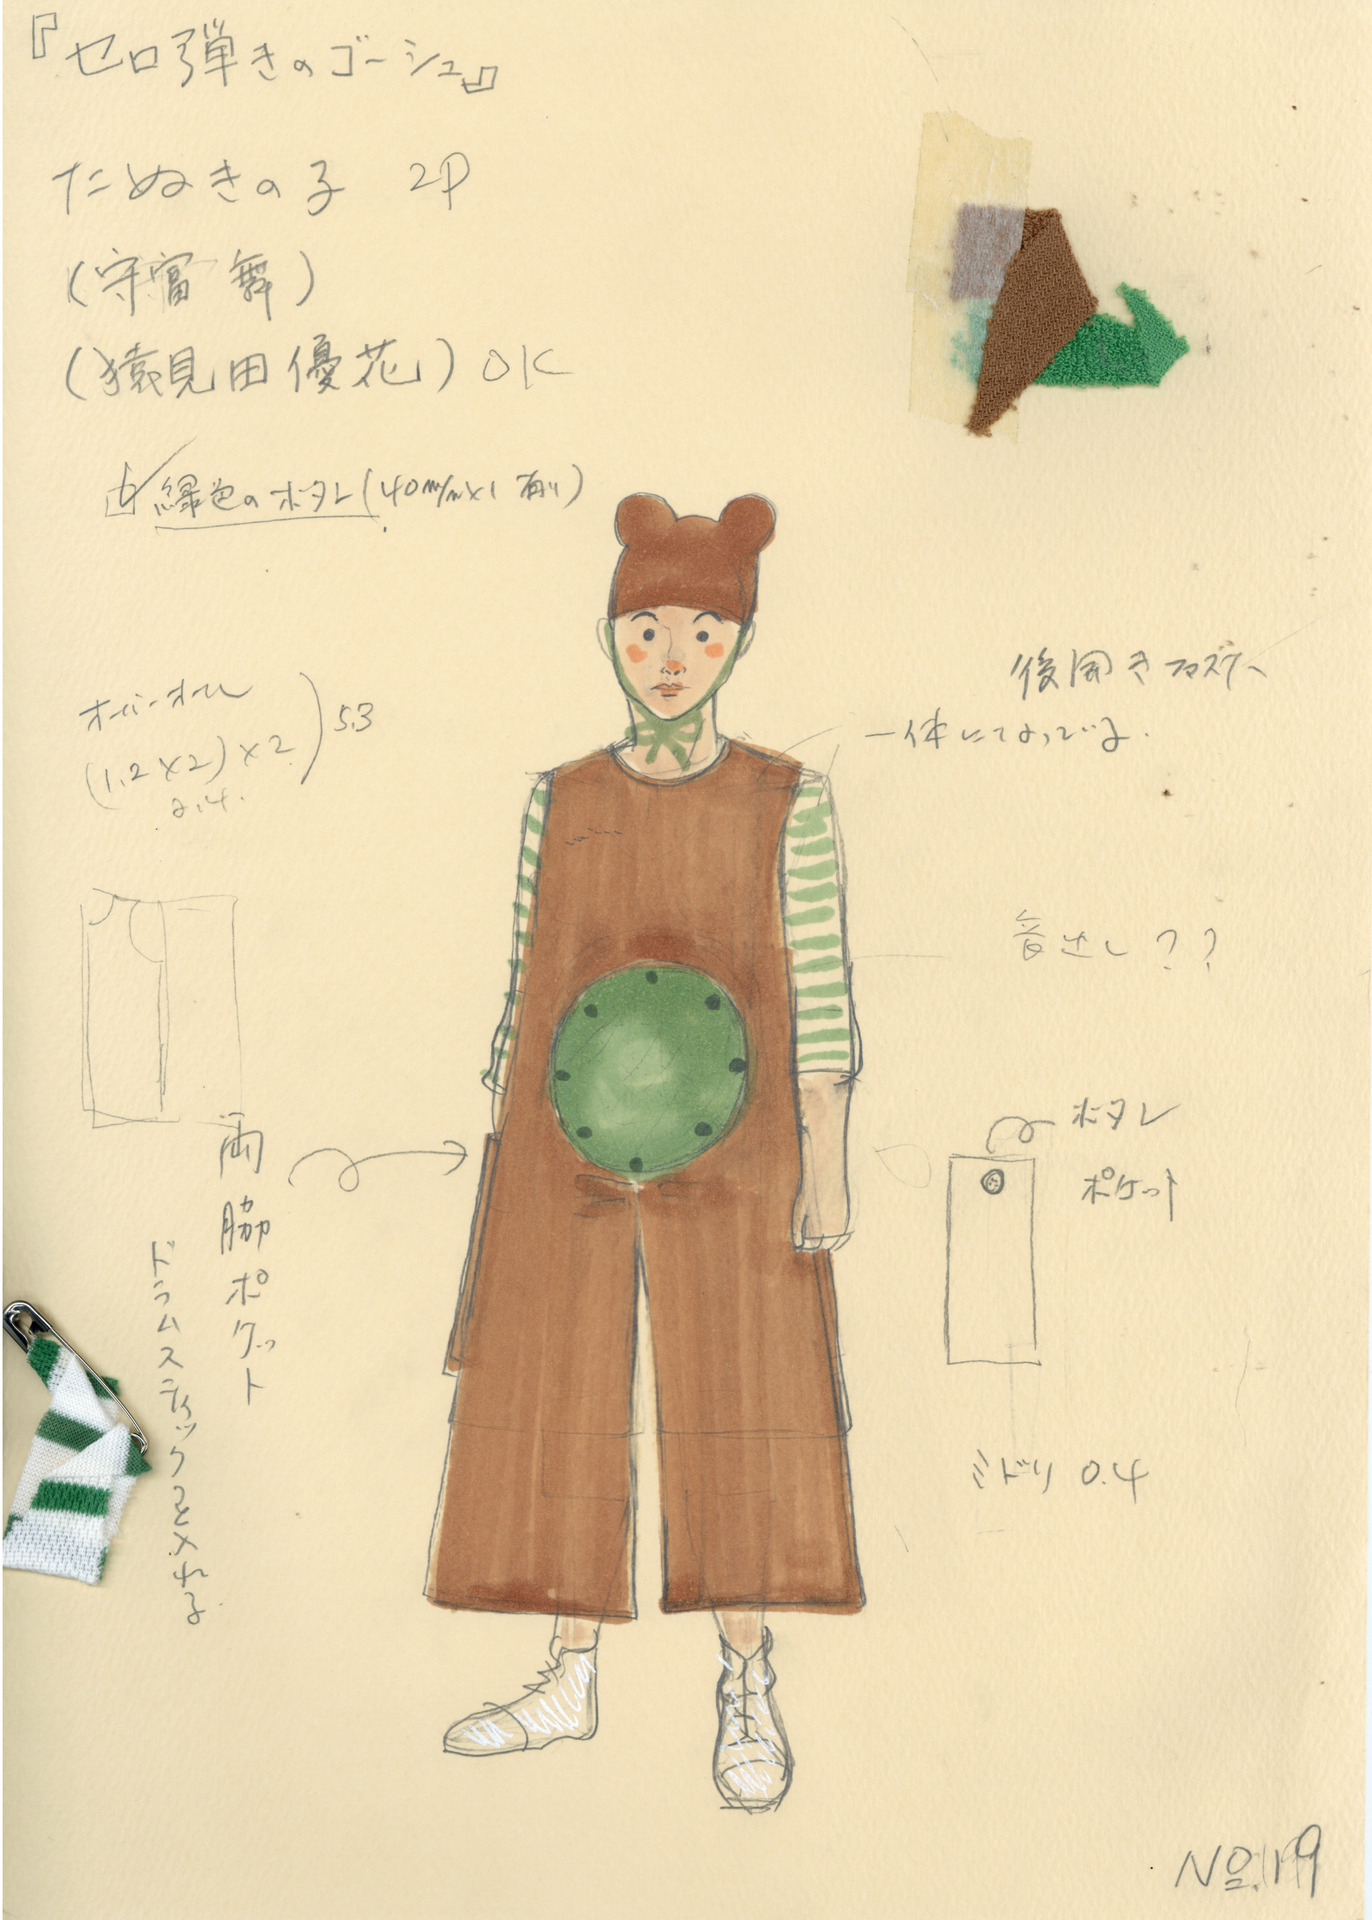 『セロ弾きのゴーシュ』
たぬきの子 2P
(守富 舞)
(猿見田優花) OK
緑色のボタン(40m/m×1 有り)
後開きファスナー
一体になっている.
オーバーオール
(1.2×2)×2 ) 5.3
2.4.
音出し??
ボタン
ポケット
両脇ポケット
ドラムスティックを入れる.
ミドリ 0.4
No.19